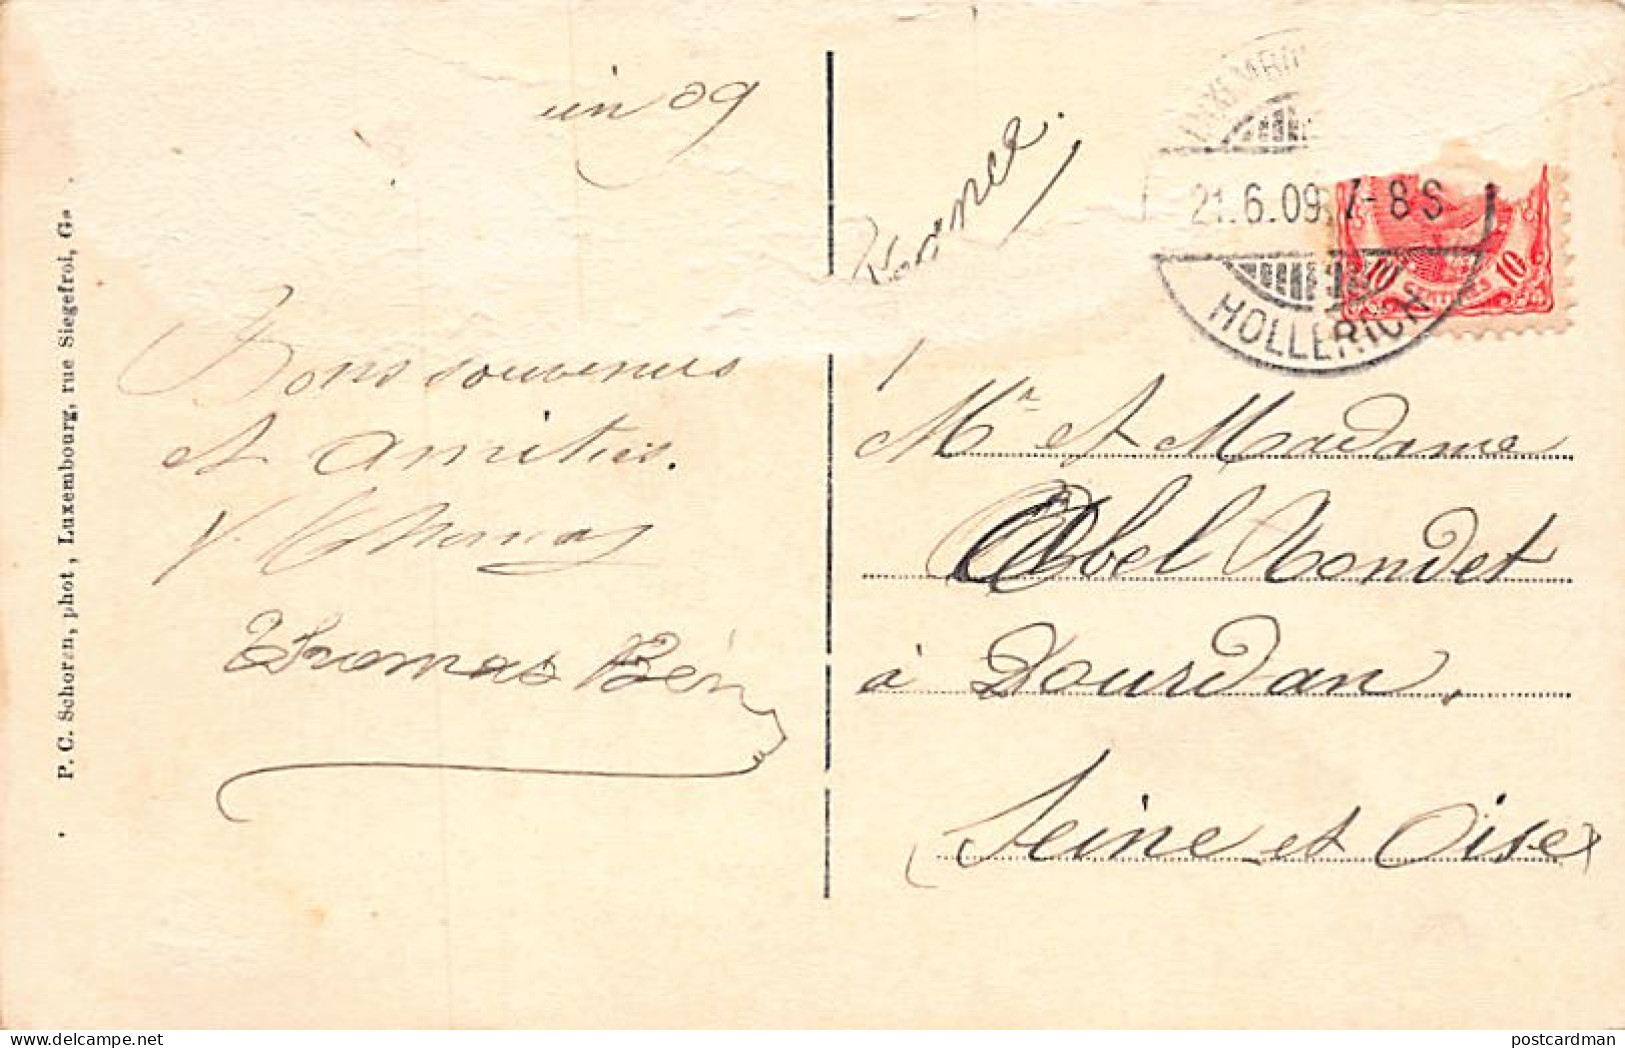 uin 09
Bons souvenirs
et amitiés.
Thomas Bén
P. C. Schoren, phot, Luxembourg, rue Siegefroi, G
France
LUXEMBOURG
21.6.09. 7-8 S
HOLLERICH
10 CENTIMES 10
Mr et Madame
Abel Nondet
à Dourdan,
Seine et Oise
postcardman